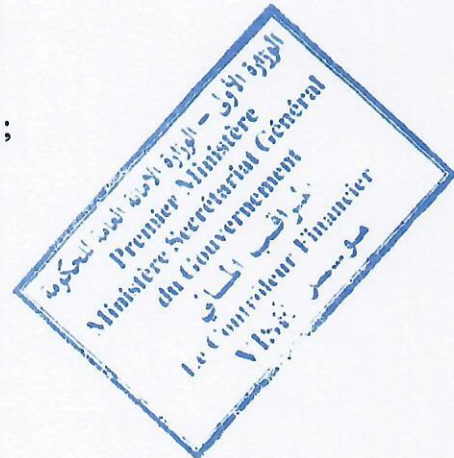 ;
الوزارة الأولى – الوزارة الأمانة العامة للحكومة
Premier Ministère
Ministère Secrétariat Général
du Gouvernement
المراقب المالي
Le Contrôleur Financier
VISE